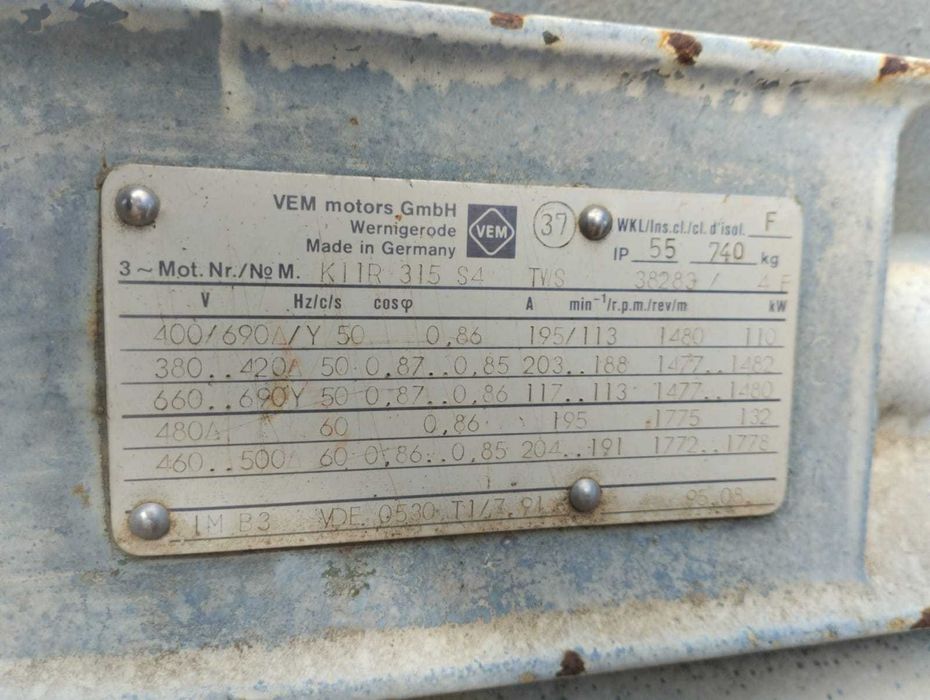 VEM motors GmbH
Wernigerode
Made in Germany
VEM
37
WKL/Ins.cl./cl. d'isol. F
IP 55 740 kg
3~Mot. Nr./No M. K11R 315 S4 TWS 38283 / 4 F
V Hz/c/s cosφ A min⁻¹/r.p.m./rev/m kW
400/690Δ/Y 50 0,86 195/113 1480 110
380..420Δ 50 0,87..0,85 203..188 1477..1482
660..690Y 50 0,87..0,86 117..113 1477..1480
480Δ 60 0,86 195 1775 132
460..500Δ 60 0,86..0,85 204..191 1772..1778
IM B3 VDE 0530 T1/7.91 95.08.